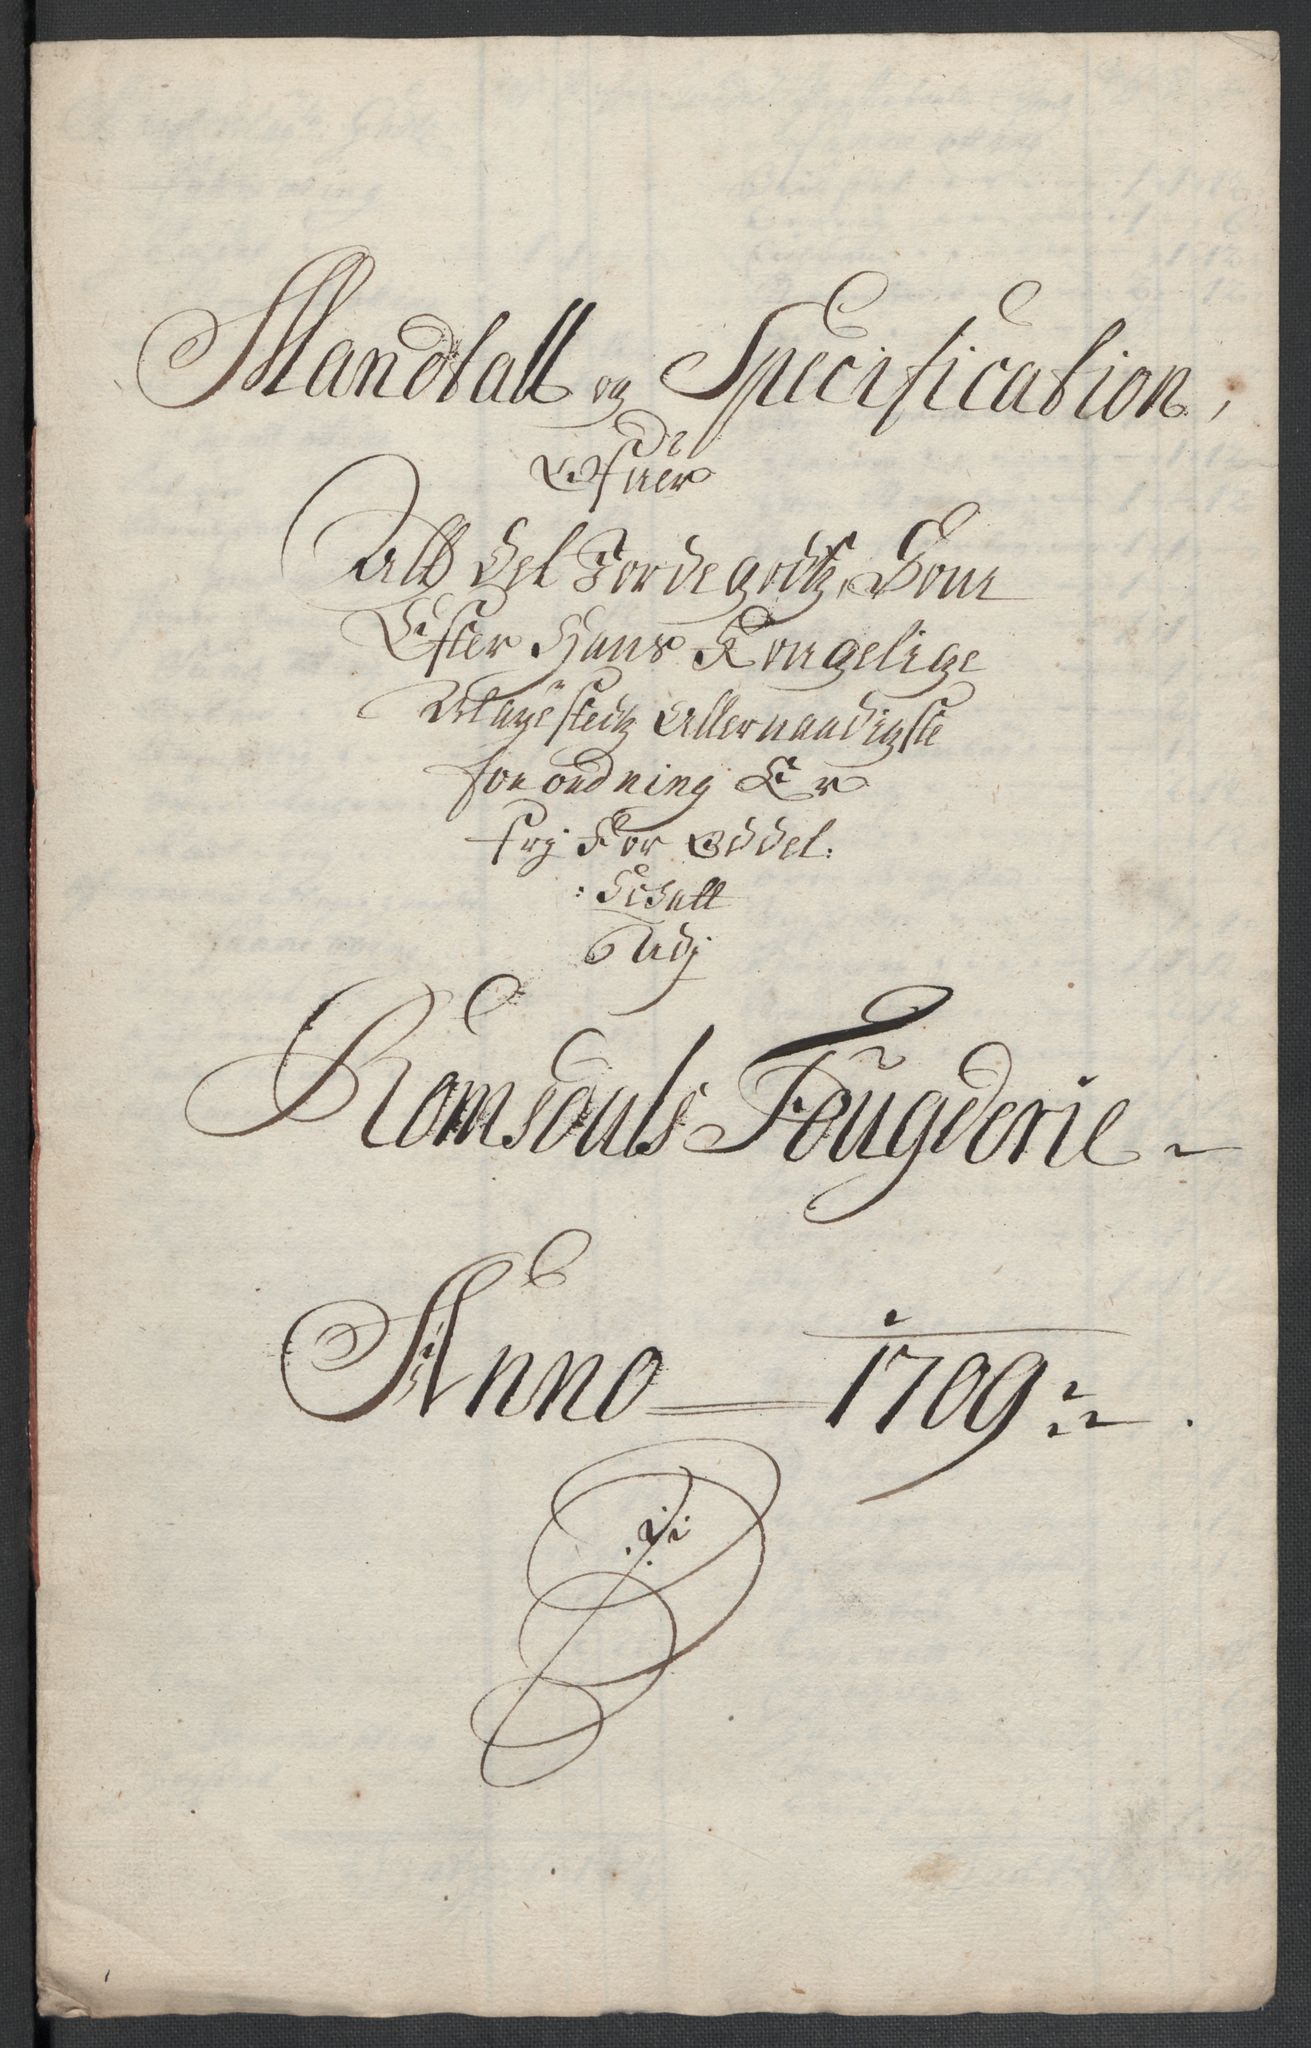 Mandtall og Specification,
Ofuer
Alt det Jordegodtz, Som
Efter Hans Kongelige
Mayestedtz Allernaadigste
forordning Er
fry For Oddel:
:Schatt
Udj
Romsdals Fougderie
Anno 1709